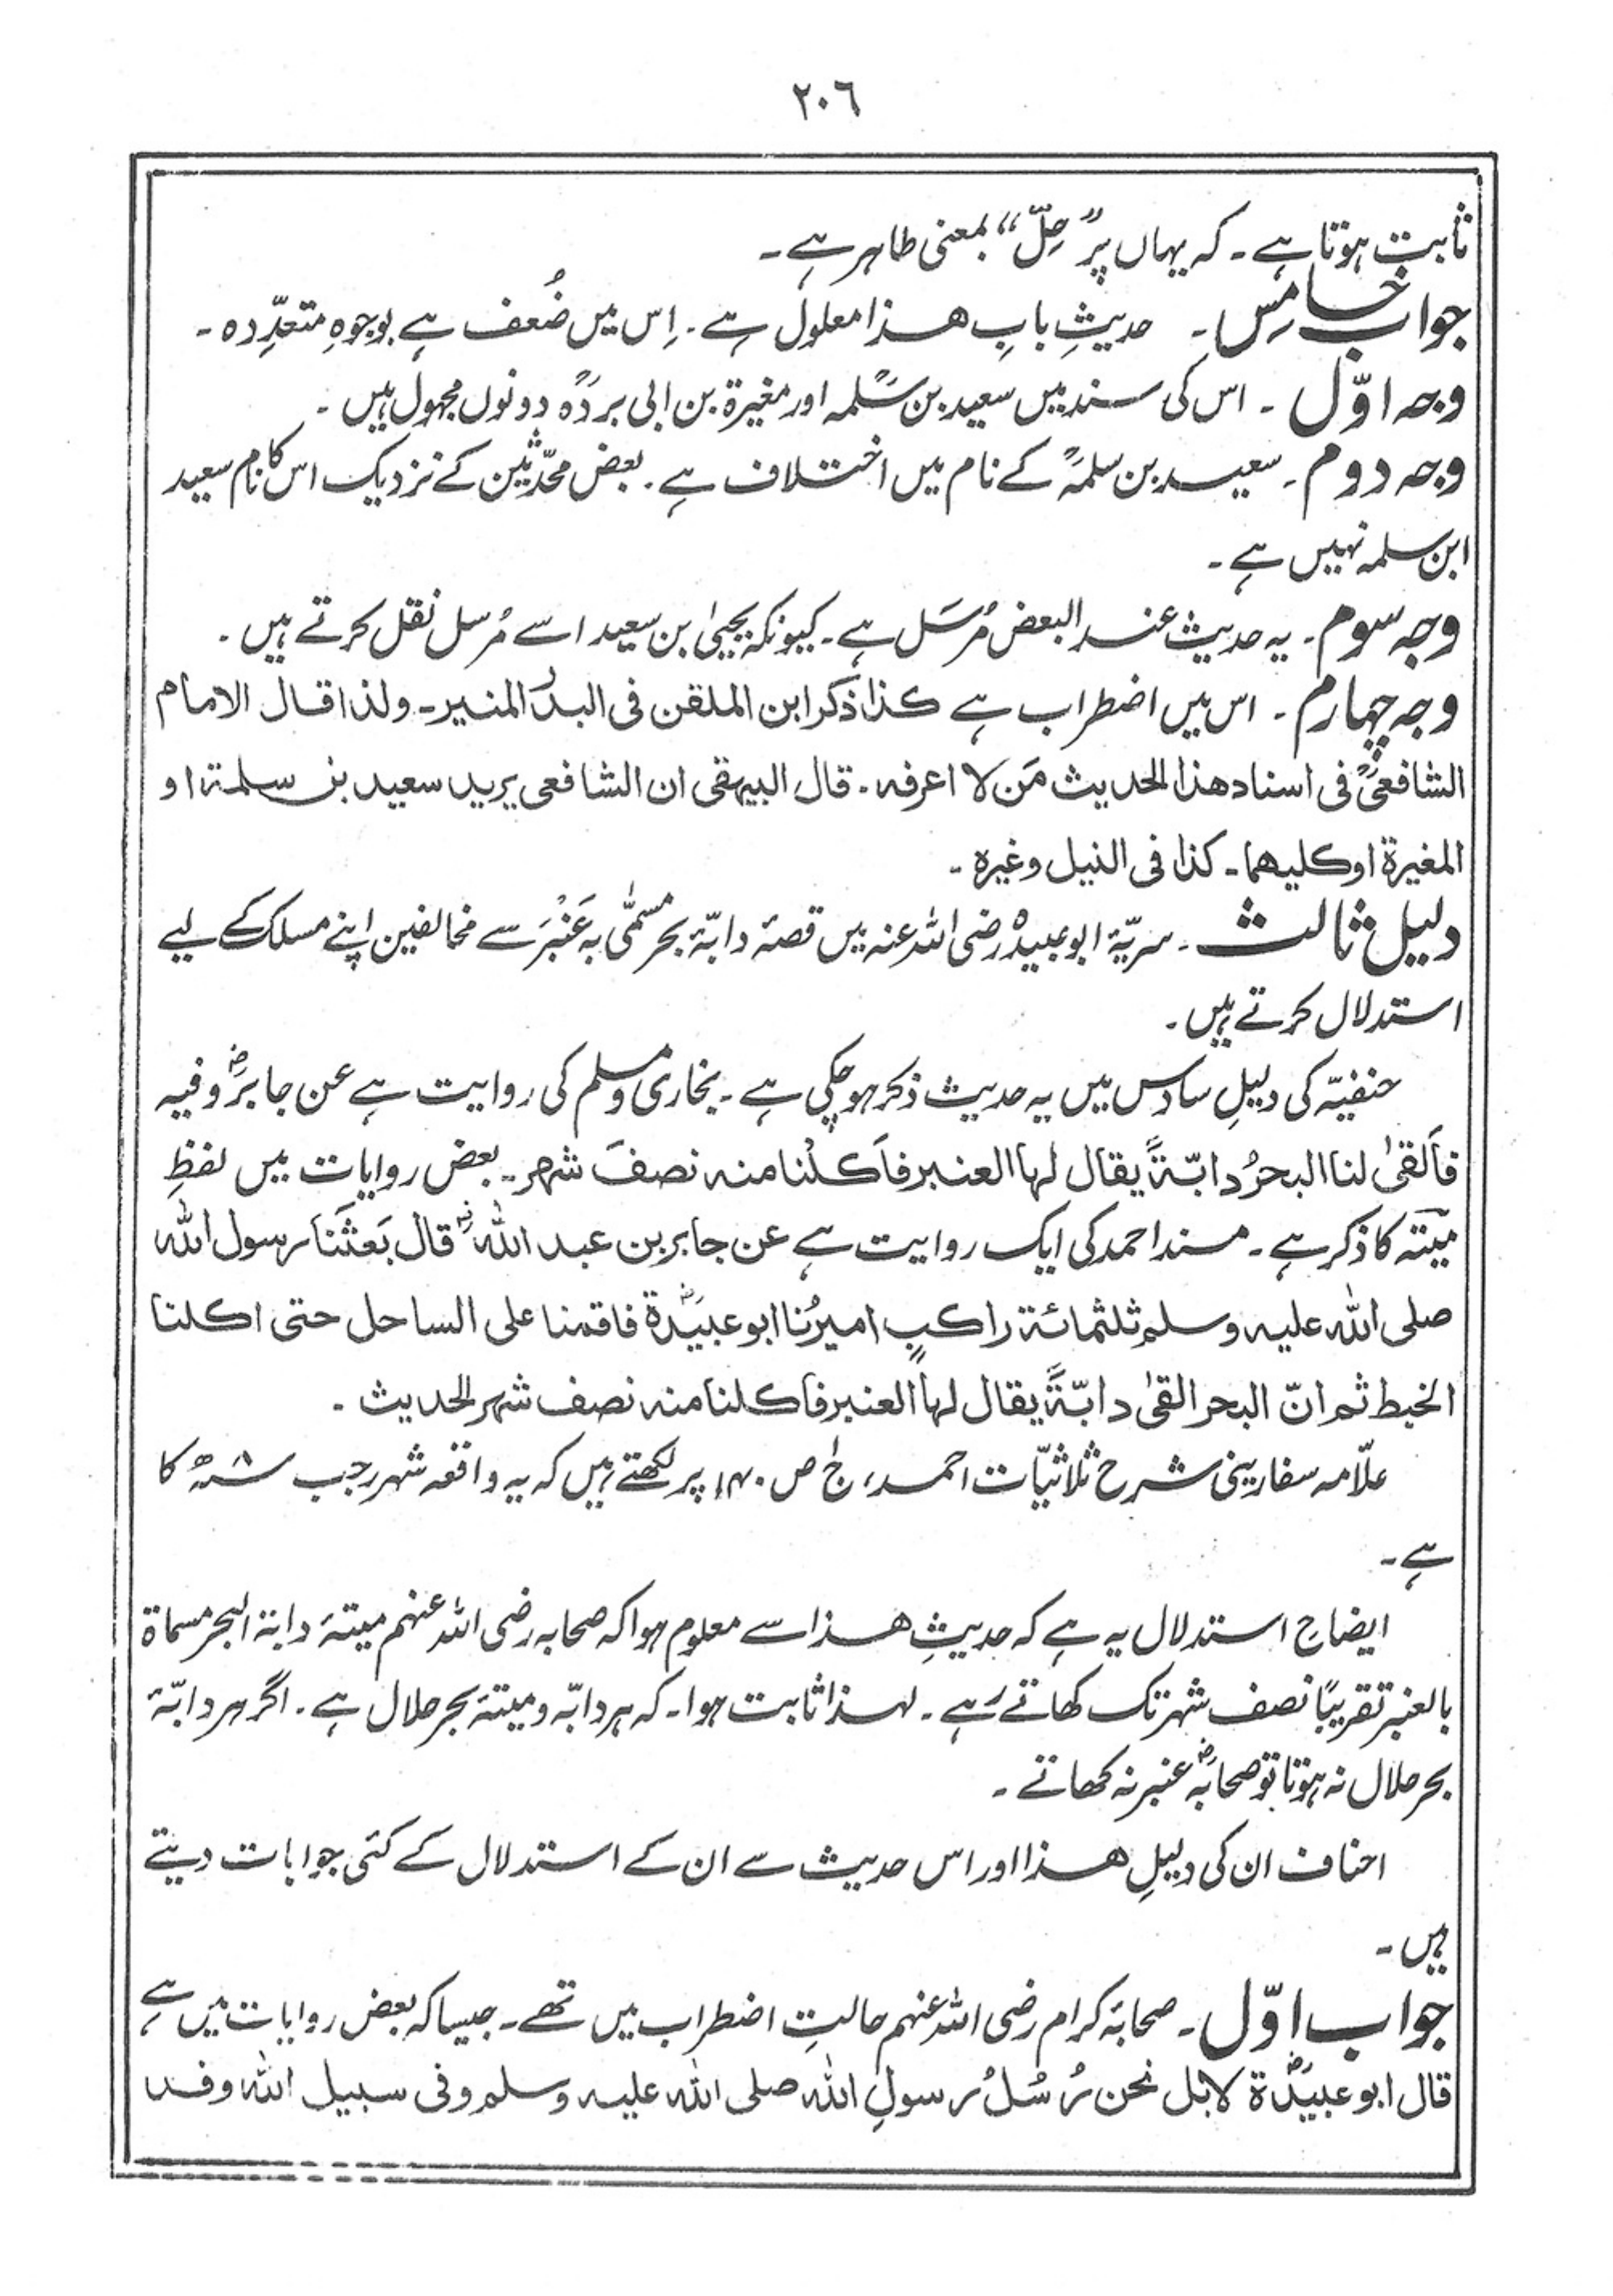 ٢٠٦
ثابت ہوتا ہے۔ کہ یہاں پر ”حِلّ“ بمعنی طاہر ہے۔
جواب خامِس۔ حدیثِ بابِ ھٰذا معلول ہے۔ اِس میں ضُعف ہے بوجوہِ متعدِّدہ۔
وجہ اوّل۔ اس کی سند میں سعید بن سَلَمہ اور مغیرۃ بن ابی بردہ دونوں مجہول ہیں۔
وجہ دوم۔ سعید بن سلمہ کے نام میں اختلاف ہے۔ بعض محدّثین کے نزدیک اس کا نام سعید
ابن سلمہ نہیں ہے۔
وجہ سوم۔ یہ حدیث عند البعض مُرسَل ہے۔ کیونکہ یحییٰ ابن سعید اسے مُرسل نقل کرتے ہیں۔
وجہ چہارم۔ اس میں اضطراب ہے کذا ذکر ابن الملقن فی البدر المنیر۔ ولذا قال الامام
الشافعیؒ فی اسناد ھذا الحدیث مَن لا اعرفہ۔ قال البیہقی ان الشافعی یرید سعید بن سلمۃ او
المغیرۃ او کلیھما۔ کذا فی النیل وغیرہ۔
دلیل ثالث۔ سریّۂ ابوعبیدہ رضی اللہ عنہ میں قصۂ دابّۂ بحر مسمّٰی بہ عَنْبَر سے مخالفین اپنے مسلک کے لیے
استدلال کرتے ہیں۔
حنفیّہ کی دلیلِ سادس میں یہ حدیث ذکر ہو چکی ہے۔ بخاری و مسلم کی روایت ہے عن جابرؓ وفیہ
فاَلقیٰ لنا البحرُ دابّۃً یقال لہا العنبر فاَکلْنا منہ نصفَ شھر۔ بعض روایات میں لفظِ
میتۃ کا ذکر ہے۔ مسند احمد کی ایک روایت ہے عن جابر بن عبد اللہؓ قال بَعثَنَا رسول اللہ
صلی اللہ علیہ وسلم ثلثمائۃ راکبٍ امیرُنا ابوعبیدۃؓ فاقمنا علی الساحل حتی اکلنا
الخبط ثم انّ البحر القیٰ دابّۃً یقال لہا العنبر فاکلنا منہ نصف شہر الحدیث۔
علّامہ سفارینی شرح ثلاثیّات احمد، ج۱ ص ۱۴۰ پر لکھتے ہیں کہ یہ واقعہ شہر رجب ۸ھ کا
ہے۔
ایضاح استدلال یہ ہے کہ حدیثِ ھٰذا سے معلوم ہوا کہ صحابہ رضی اللہ عنہم میتۂ دابۃ البحر مسماۃ
بالعنبر تقریبًا نصف شہر تک کھاتے رہے۔ لہٰذا ثابت ہوا۔ کہ ہر دابّہ و میتۂ بحر حلال ہے۔ اگر ہر دابّۂ
بحر حلال نہ ہوتا تو صحابہؓ عنبر نہ کھاتے۔
احناف ان کی دلیلِ ھٰذا اور اس حدیث سے ان کے استدلال کے کئی جوابات دیتے
ہیں۔
جواب اوّل۔ صحابۂ کرام رضی اللہ عنہم حالتِ اضطراب میں تھے۔ جیسا کہ بعض روایات میں ہے
قال ابوعبیدۃؓ لا بل نحن رُسُلُ رسولِ اللہ صلی اللہ علیہ وسلم وفی سبیل اللہ وقد